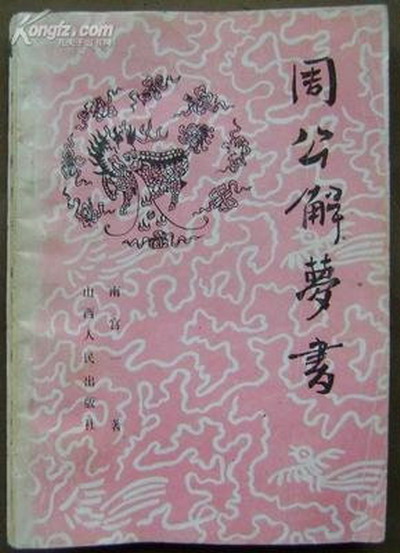 Kongfz.com
孔夫子旧书网
周公解夢書
南宫一 著
山西人民出版社